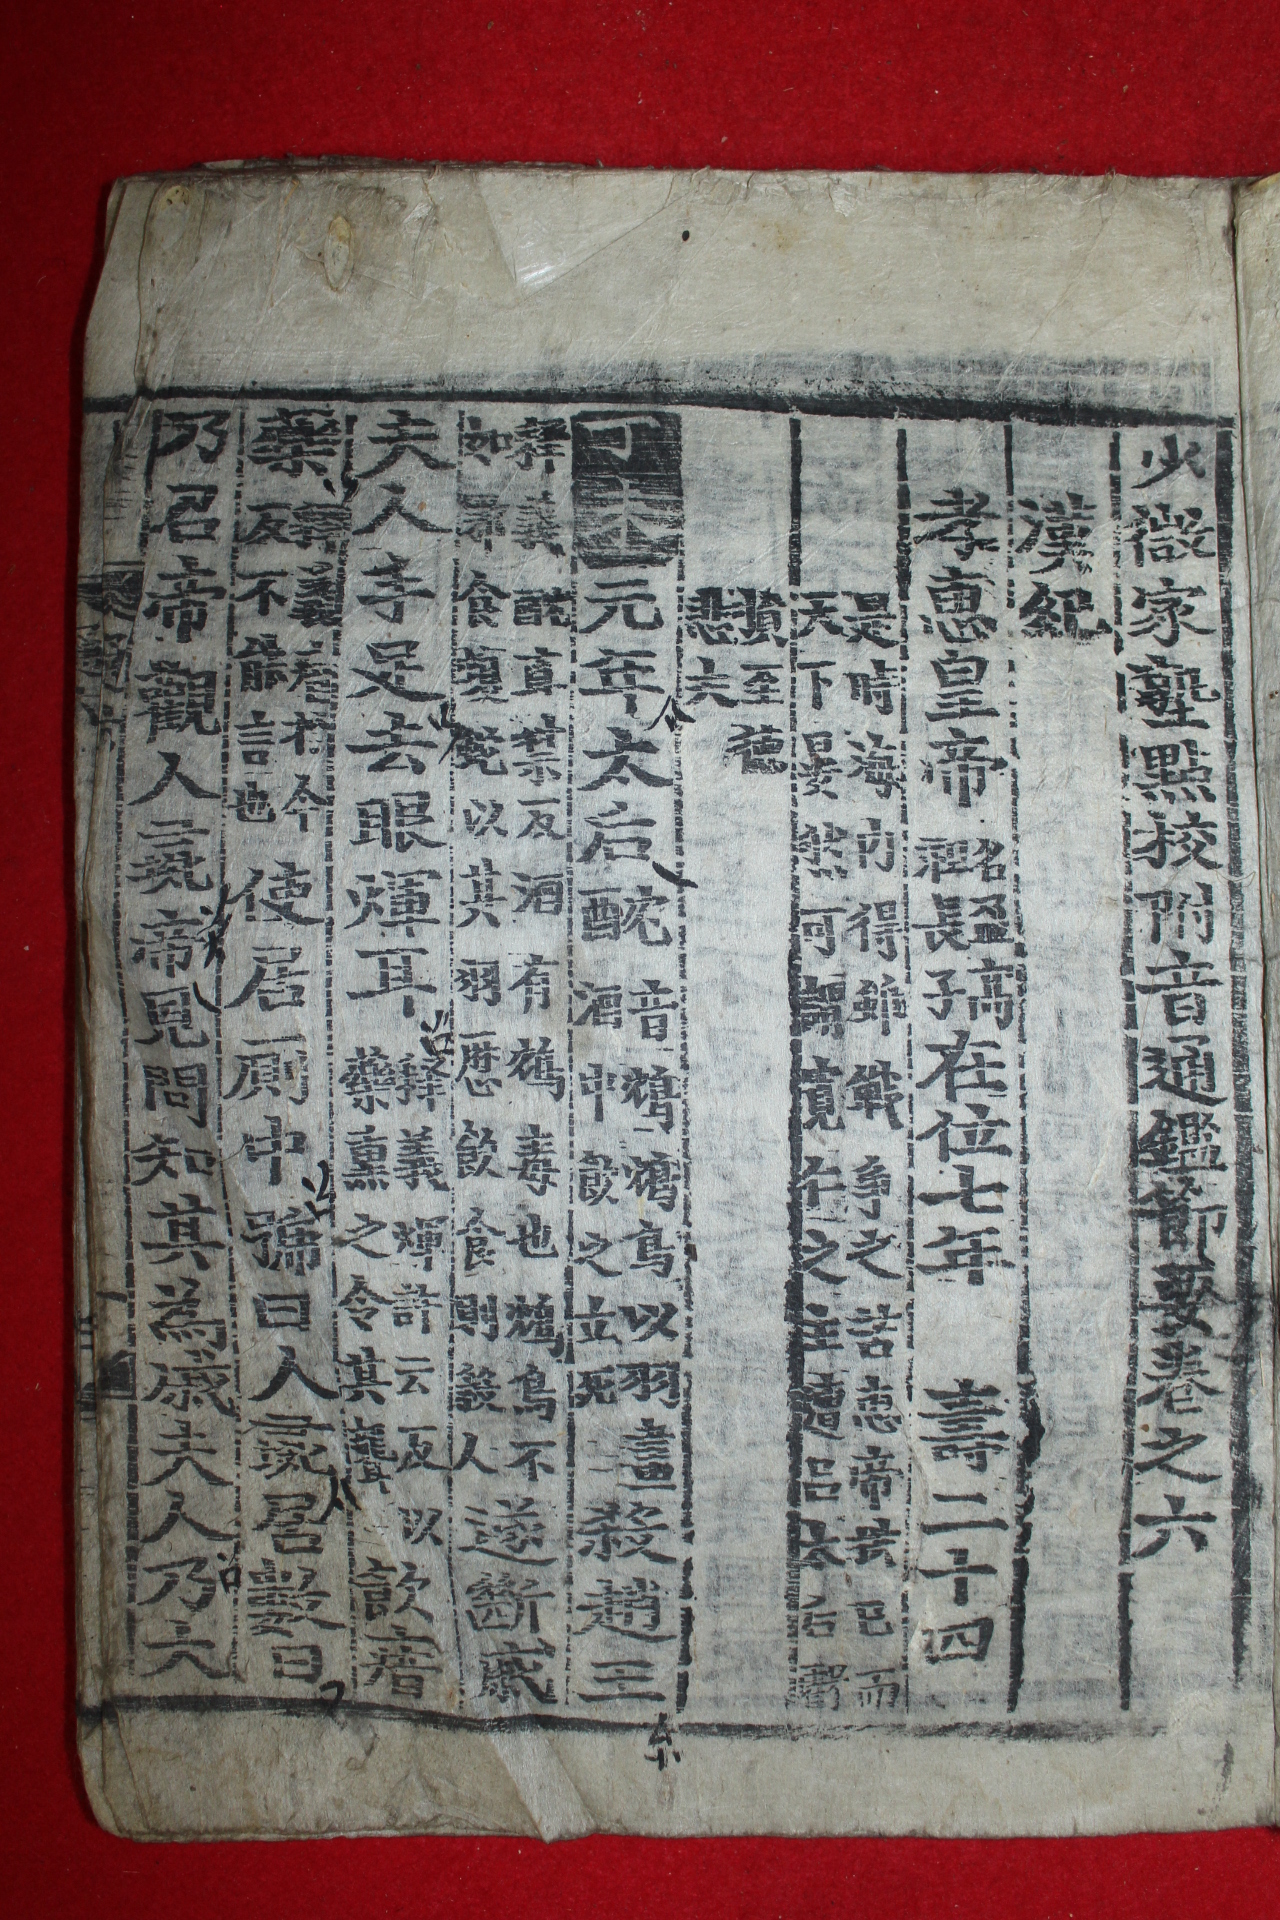 少微家塾點校附音通鑑節要卷之六
漢紀
孝惠皇帝名盈高祖長子在位七年 壽二十四
是時海内得離戰爭之苦惠帝恭己而
天下晏然可謂寛仁之主遭呂太后虧
損至德
悲夫
丁未元年太后酖音鴆鴆鳥以羽畫酒中飮之立死殺趙王
釋義酖直禁反酒有鴆毒也鴆鳥不
如鄂食蝮蛇以其羽歷飮食則殺人遂斷戚
夫人手足去眼煇耳釋義煇許云反以藥熏之令其聾飮瘖
藥釋義瘖於今反不能言也使居厠中號曰人彘居數日
乃召帝觀人彘帝見問知其爲戚夫人乃大